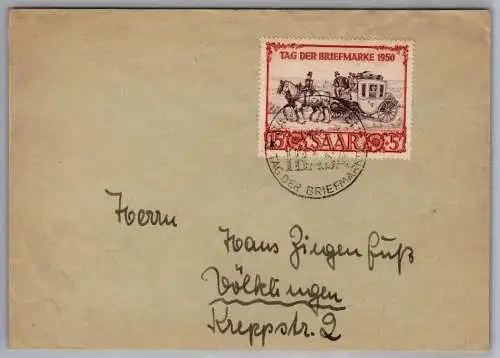 TAG DER BRIEFMARKE 1950
15 SAAR 57
IBASA
TAG DER BRIEFMARKE
Herrn
Hans Ziegenfuß
Völklingen
Kreppstr. 2